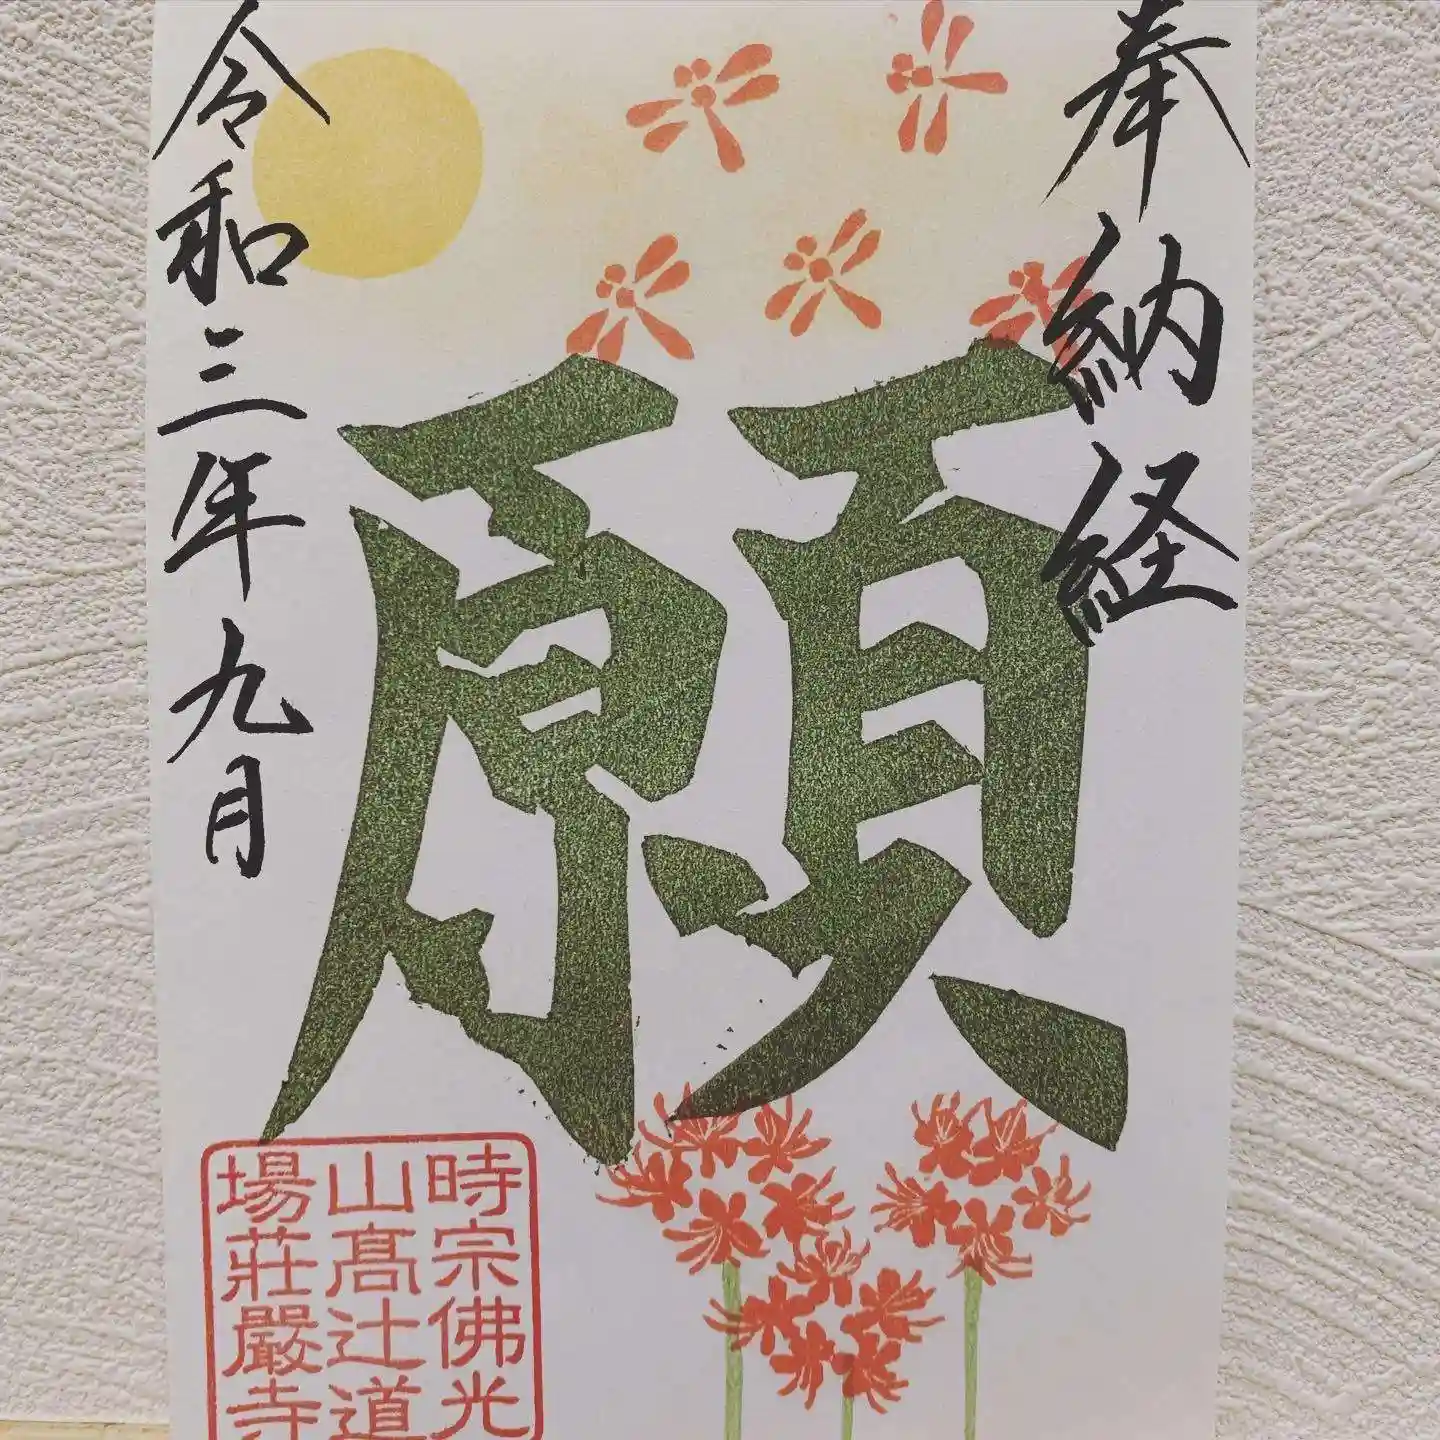 奉納経
願
令和三年九月
時宗佛光
山髙辻道
場莊嚴寺